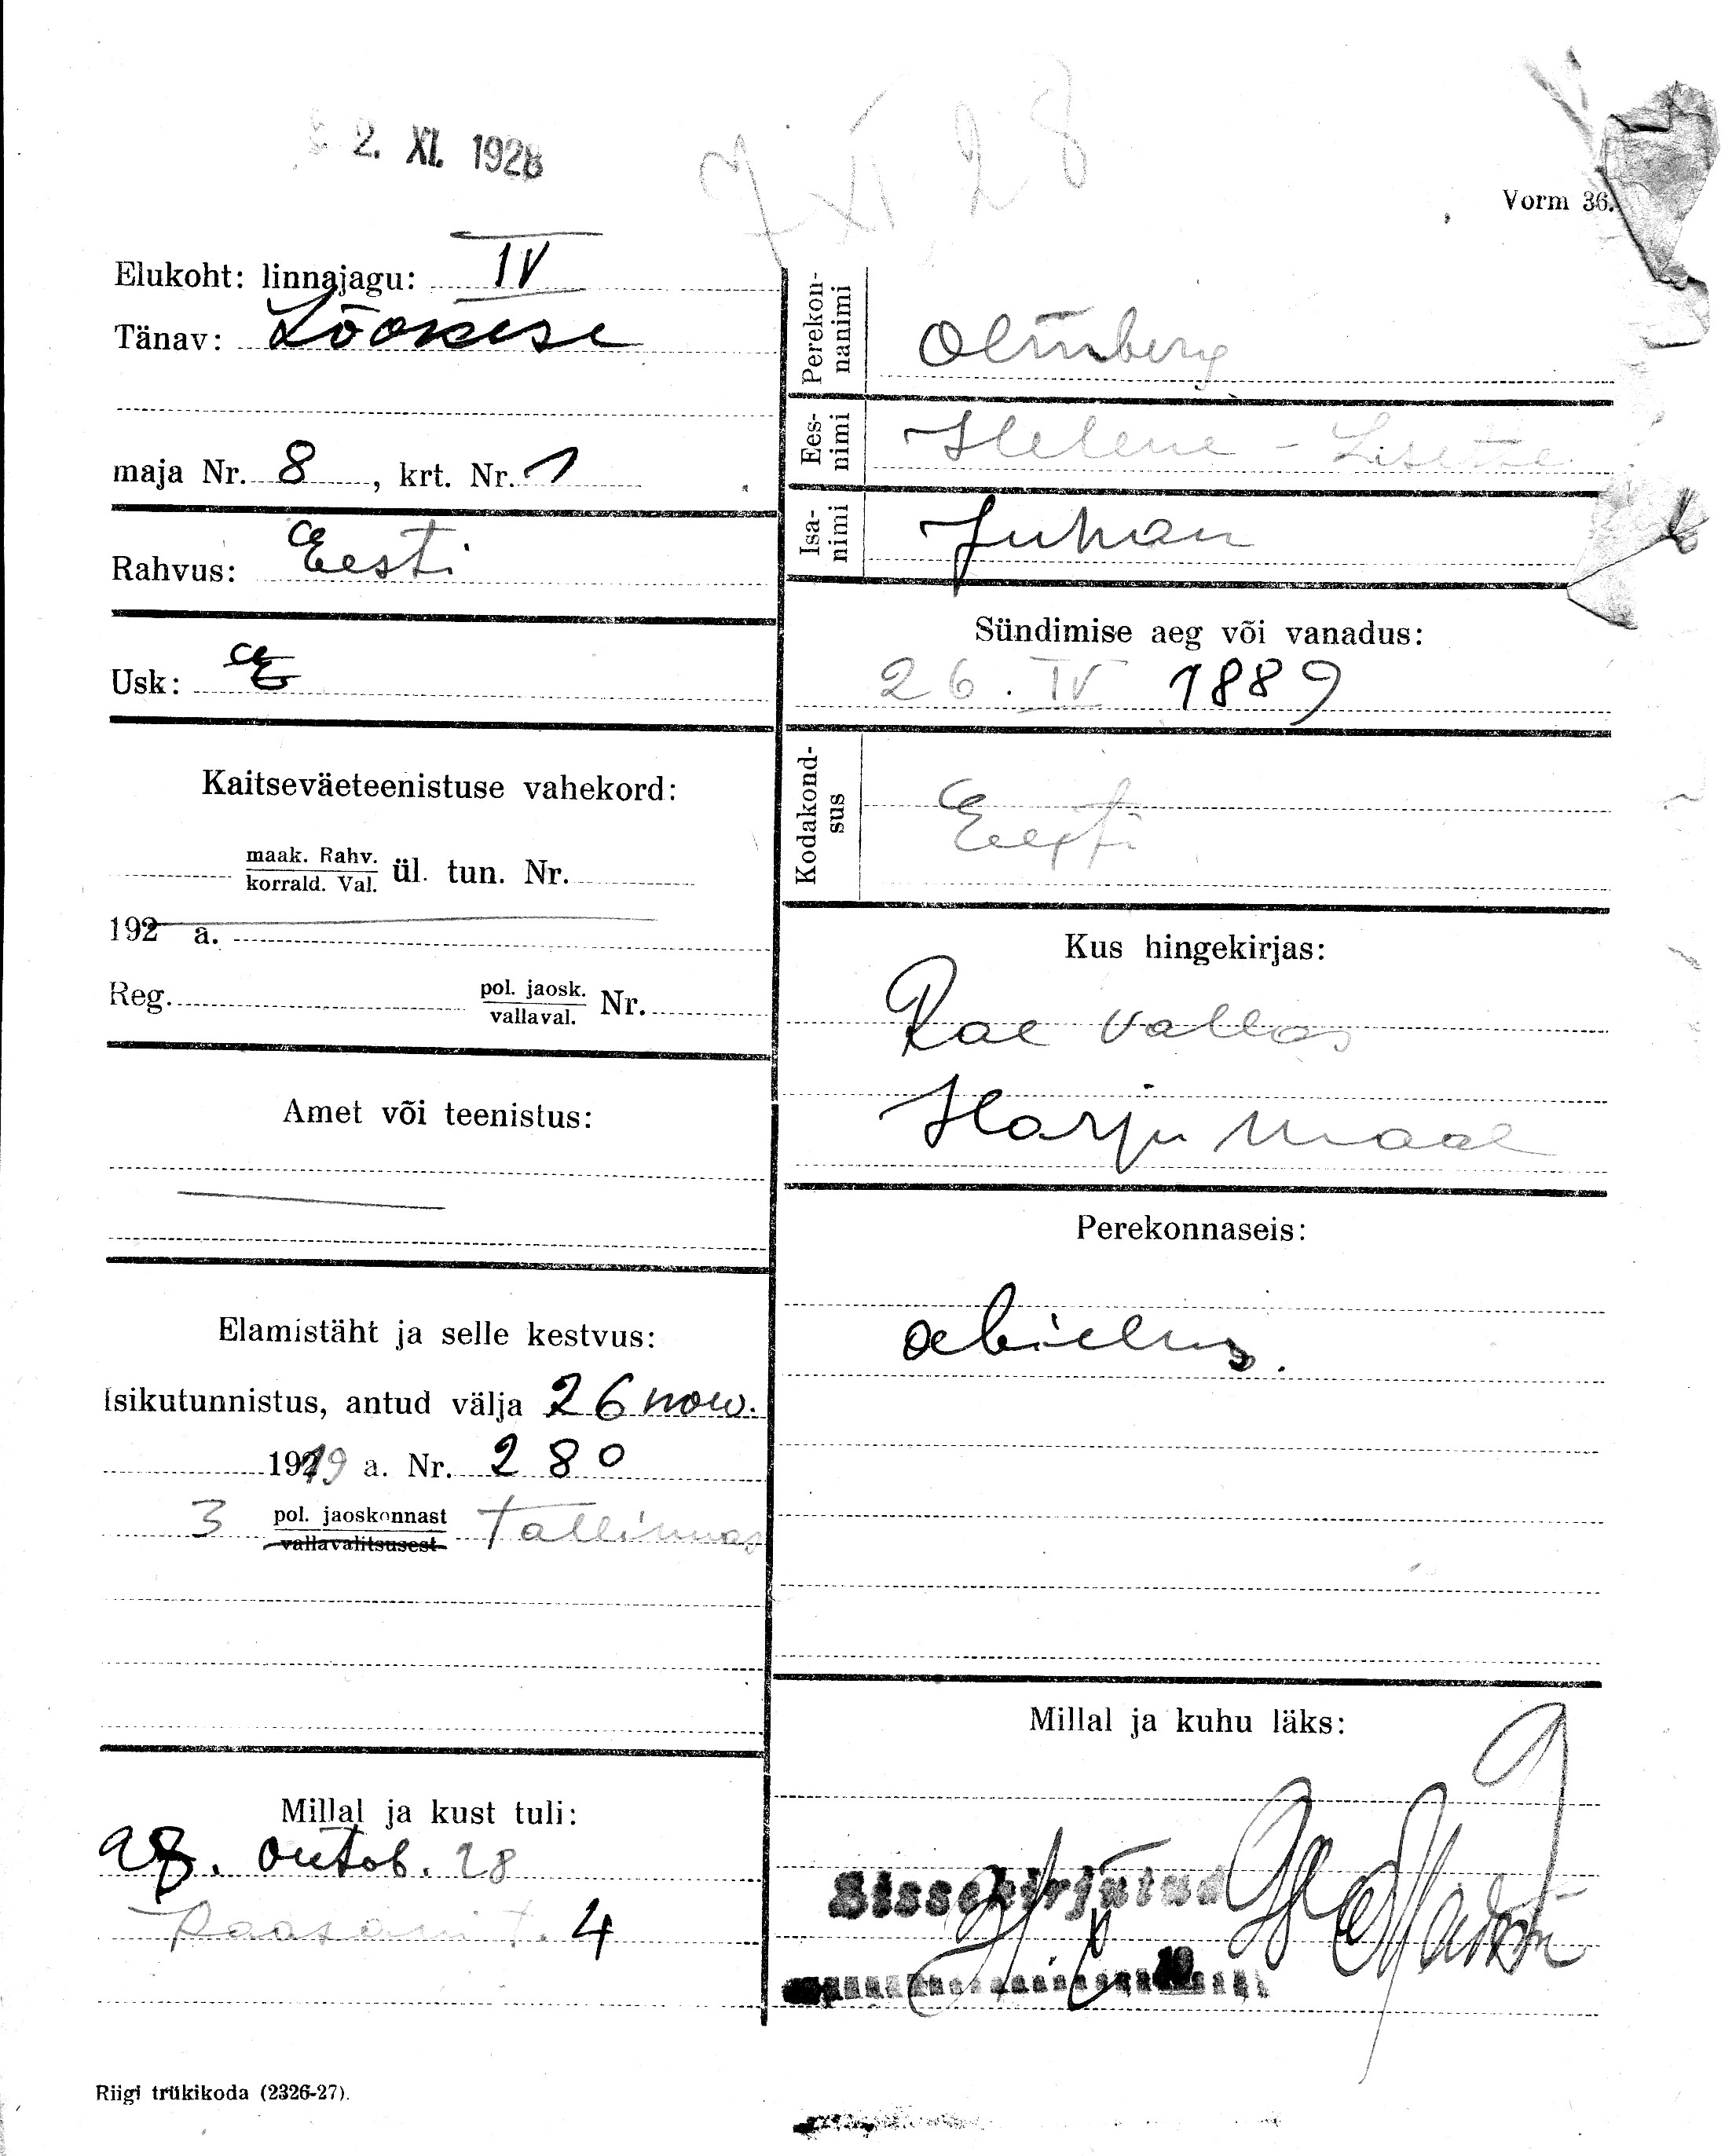 2. XI. 1928
7 XI 28
Vorm 36.
Elukoht: linnajagu: IV
Tänav: Lõokese
maja Nr. 8, krt. Nr. 1
Rahvus: Eesti
Usk: E
Kaitseväeteenistuse vahekord:
maak. Rahv.
korrald. Val. ül. tun. Nr.
192 a.
Reg. pol. jaosk.
vallaval. Nr.
Amet või teenistus:
Elamistäht ja selle kestvus:
Isikutunnistus, antud välja 26 now.
1919 a. Nr. 280
3 pol. jaoskonnast Tallinnas
vallavalitsusest
Millal ja kust tuli:
28. Outob. 28
Kaasani t. 4
Perekon-
nanimi
Olmberg
Ees-
nimi
Helene - Lisette
Isa-
nimi
Juhan
Sündimise aeg või vanadus:
26. IV 1889
Kodakond-
sus
Eesti
Kus hingekirjas:
Rae vallas
Harju maal
Perekonnaseis:
abielus.
Millal ja kuhu läks:
Sissekirjutud
Riigi trükikoda (2326-27).